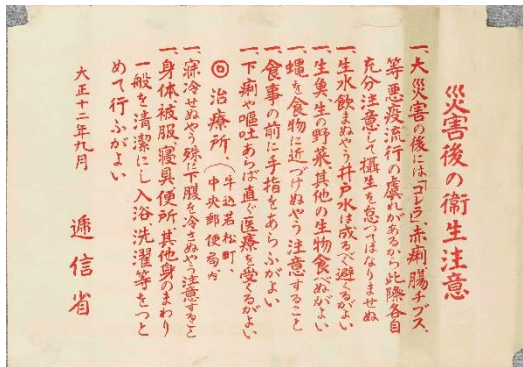 災害後の衛生注意
一、大災害の後には「コレラ」、赤痢、腸チブス、
等悪疫流行の虞れがあるから此際各自
充分注意して攝生を怠つてはなりませぬ
一、生水飲まぬやう井戸水は成るべく避くるがよい
一、生魚、生の野菜其他の生物食べぬがよい
一、蠅を食物に近づけぬやう注意すること
一、食事の前に手指をあらふがよい
一、下痢や嘔吐あらば直ぐ医療を受くるがよい
◎治療所、(牛込若松町、
中央郵便局内
一、寐冷せぬやう殊に下腹を冷さぬやう注意すること
一、身体被服、寝具便所、其他身のまわり
一般を清潔にし入浴、洗濯等をつと
めて行ふがよい
大正十二年九月
逓信省